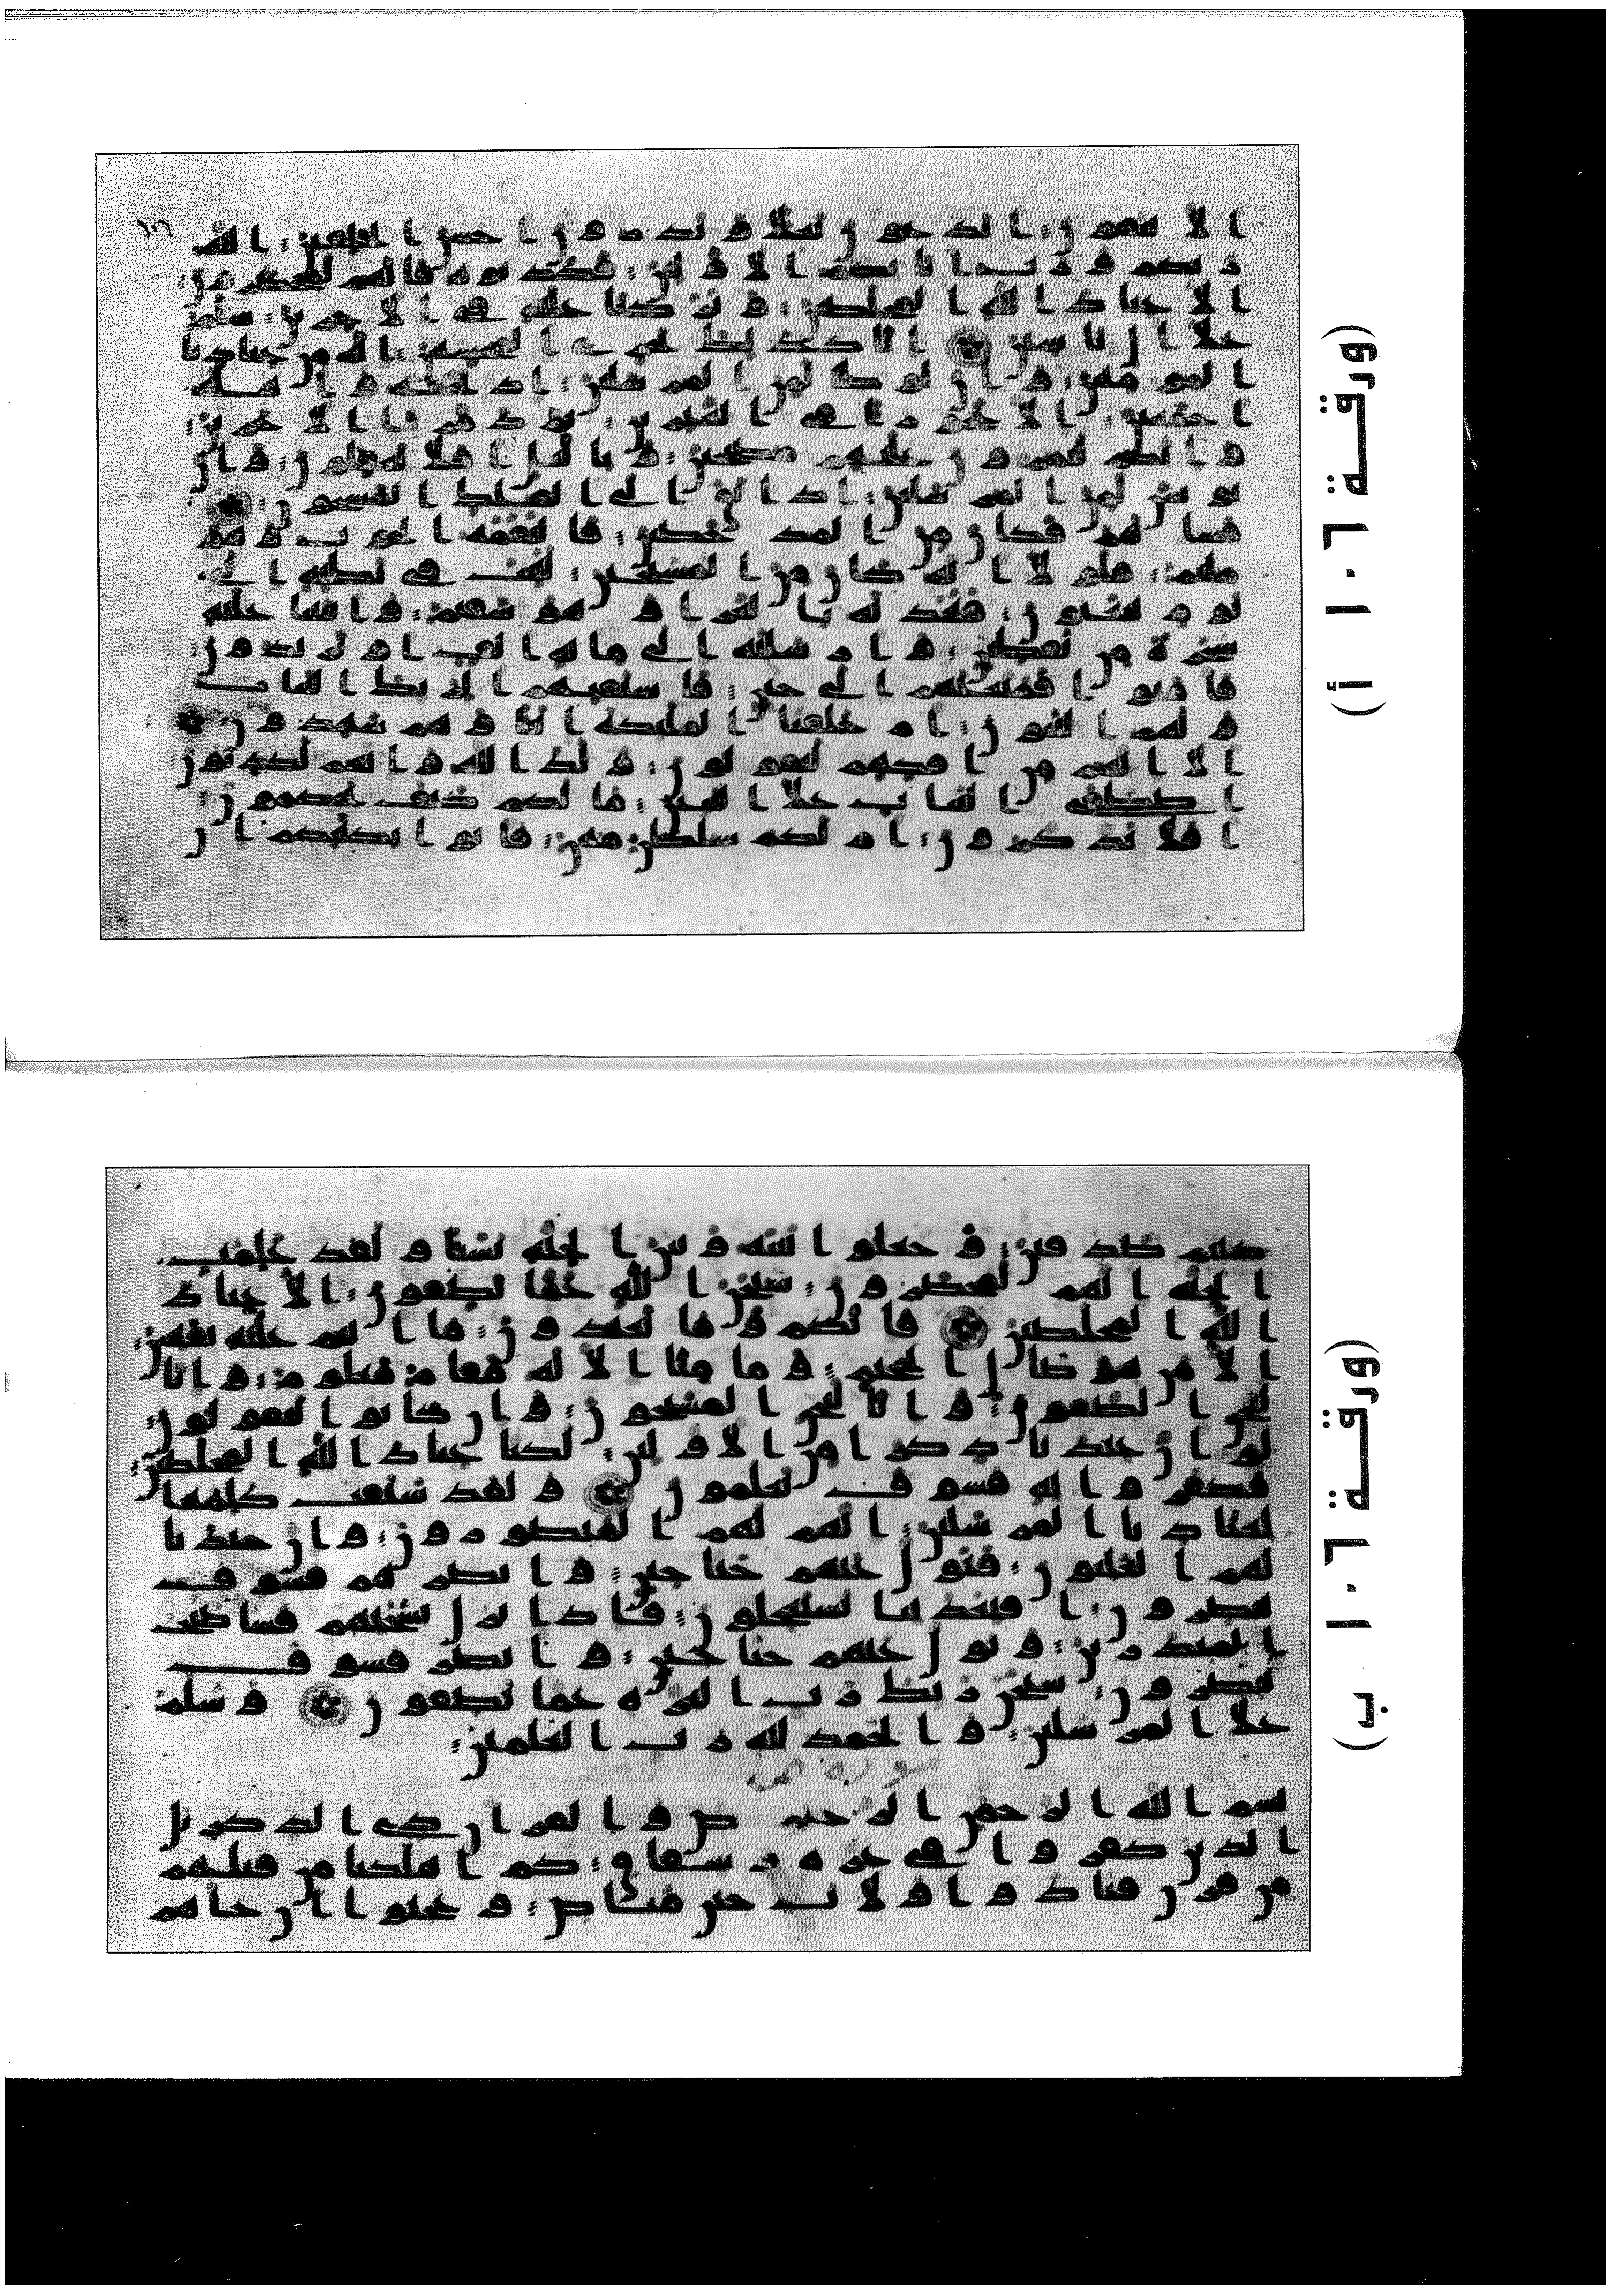 ١٠٦
الا تتقون اتدعون بعلا وتذرون احسن الخلقين الله
ربكم ورب ابائكم الاولين فكذبوه فانهم لمحضرون
الا عباد الله المخلصين وتركنا عليه في الاخرين سلم
علا ال ياسين انا كذلك نجزي المحسنين انه من عبادنا
المومنين وان لوطا لمن المرسلين اذ نجينه واهله
اجمعين الا عجوزا في الغبرين ثم دمرنا الاخرين
وانكم لتمرون عليهم مصبحين وباليل افلا تعقلون وان
يونس لمن المرسلين اذ ابق الى الفلك المشحون
فساهم فكان من المدحضين فالتقمه الحوت وهو
مليم فلولا انه كان من المسبحين للبث في بطنه الى
يوم يبعثون فنبذنه بالعرا وهو سقيم وانبتنا عليه
شجرة من يقطين وارسلنه الى مائة الف او يزيدون
فامنوا فمتعنهم الى حين فاستفتهم الربك البنات
ولهم البنون ام خلقنا الملئكة اناثا وهم شهدون
الا انهم من افكهم ليقولون ولد الله وانهم لكذبون
اصطفى البنات علا البنين مالكم كيف تحكمون
افلا تذكرون ام لكم سلطن مبين فاتوا بكتبكم ان
(ورقة ١٠٦ أ)
كنتم صدقين وجعلوا بينه وبين الجنة نسبا ولقد علمت
الجنة انهم لمحضرون سبحن الله عما يصفون الا عباد
الله المخلصين فانكم وما تعبدون ما انتم عليه بفتنين
الا من هو صال الجحيم وما منا الا له مقام معلوم وانا
لنحن الصافون وانا لنحن المسبحون وان كانوا ليقولون
لو ان عندنا ذكرا من الاولين لكنا عباد الله المخلصين
فكفروا به فسوف يعلمون ولقد سبقت كلمتنا
لعبادنا المرسلين انهم لهم المنصورون وان جندنا
لهم الغلبون فتول عنهم حتا حين وابصرهم فسوف
يبصرون افبعذابنا يستعجلون فاذا نزل بساحتهم فسا صبح
المنذرين وتول عنهم حتا حين وابصر فسوف
يبصرون سبحن ربك رب العزة عما يصفون وسلم
علا المرسلين والحمد لله رب العلمين
سورة ص
بسم الله الرحمن الرحيم ص والقران ذي الذكر بل
الذين كفروا في عزة وشقاق كم اهلكنا من قبلهم
من قرن فنادوا ولات حين مناص وعجبوا ان جاهم
(ورقة ١٠٦ ب)